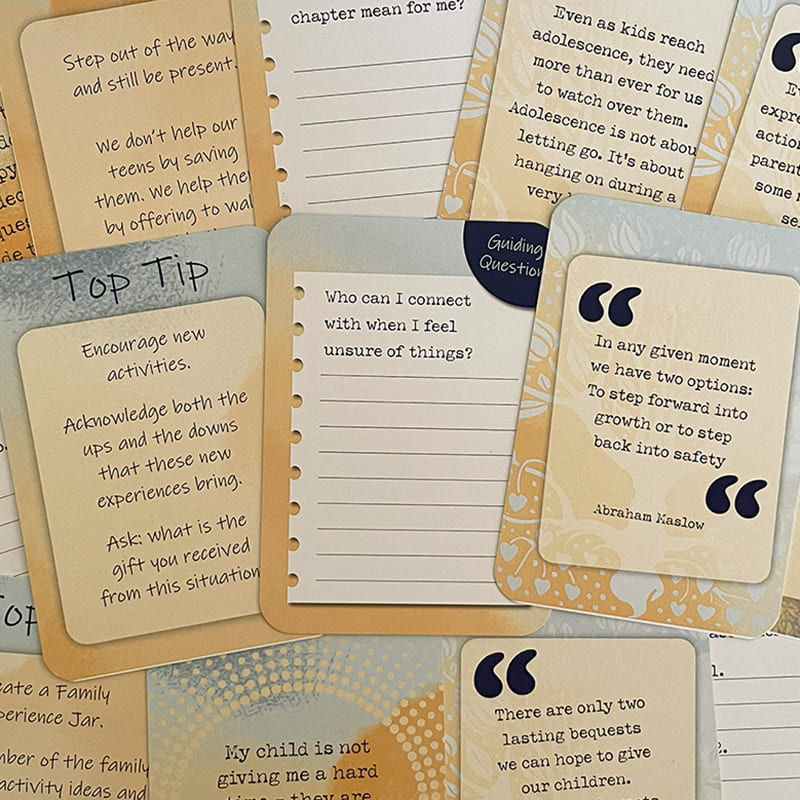 Step out of the way
and still be present.
We don't help our
teens by saving
them. We help
by offering to
chapter mean for me?
Even as kids reach
adolescence, they need
more than ever for us
to watch over them.
Adolescence is not
letting go. It's about
hanging on during a
very
Top Tip
Encourage new
activities.
Acknowledge both the
ups and the downs
that these new
experiences bring.
Ask: what is the
gift you received
from this situation
Guiding
Question
Who can I connect
with when I feel
unsure of things?
“
In any given moment
we have two options:
To step forward into
growth or to step
back into safety
“
Abraham Maslow
a Family
Jar.
of the family
activity ideas and
My child is not
giving me a hard
time - they are
“
There are only two
lasting bequests
we can hope to give
our children.
1.
2.